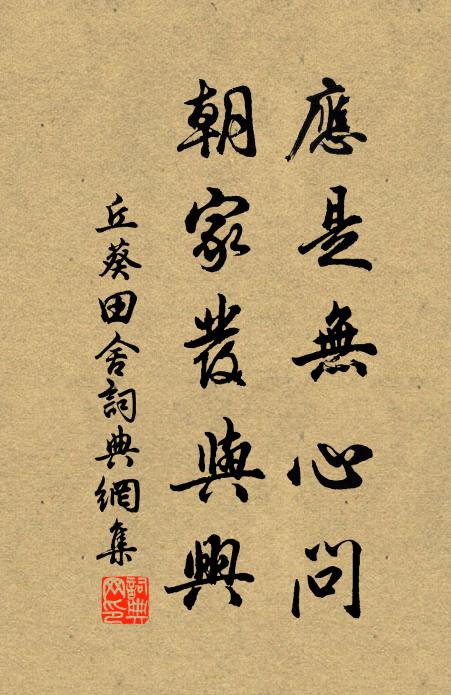 應是無心問
朝家發與興
丘葵田舍詞典網集
詞典
网印